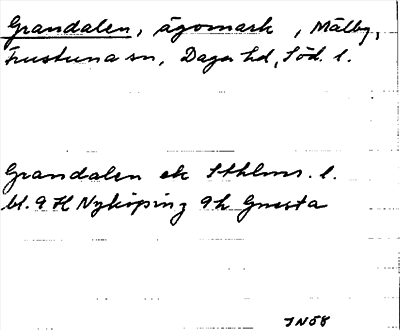 Grandalen, ägomark, Mälby,
Frustuna sn, Daga hd, Söd. l.
Grandalen ek Sthlms. l.
bl. 9 H Nyköping 9h Gnesta
JN58